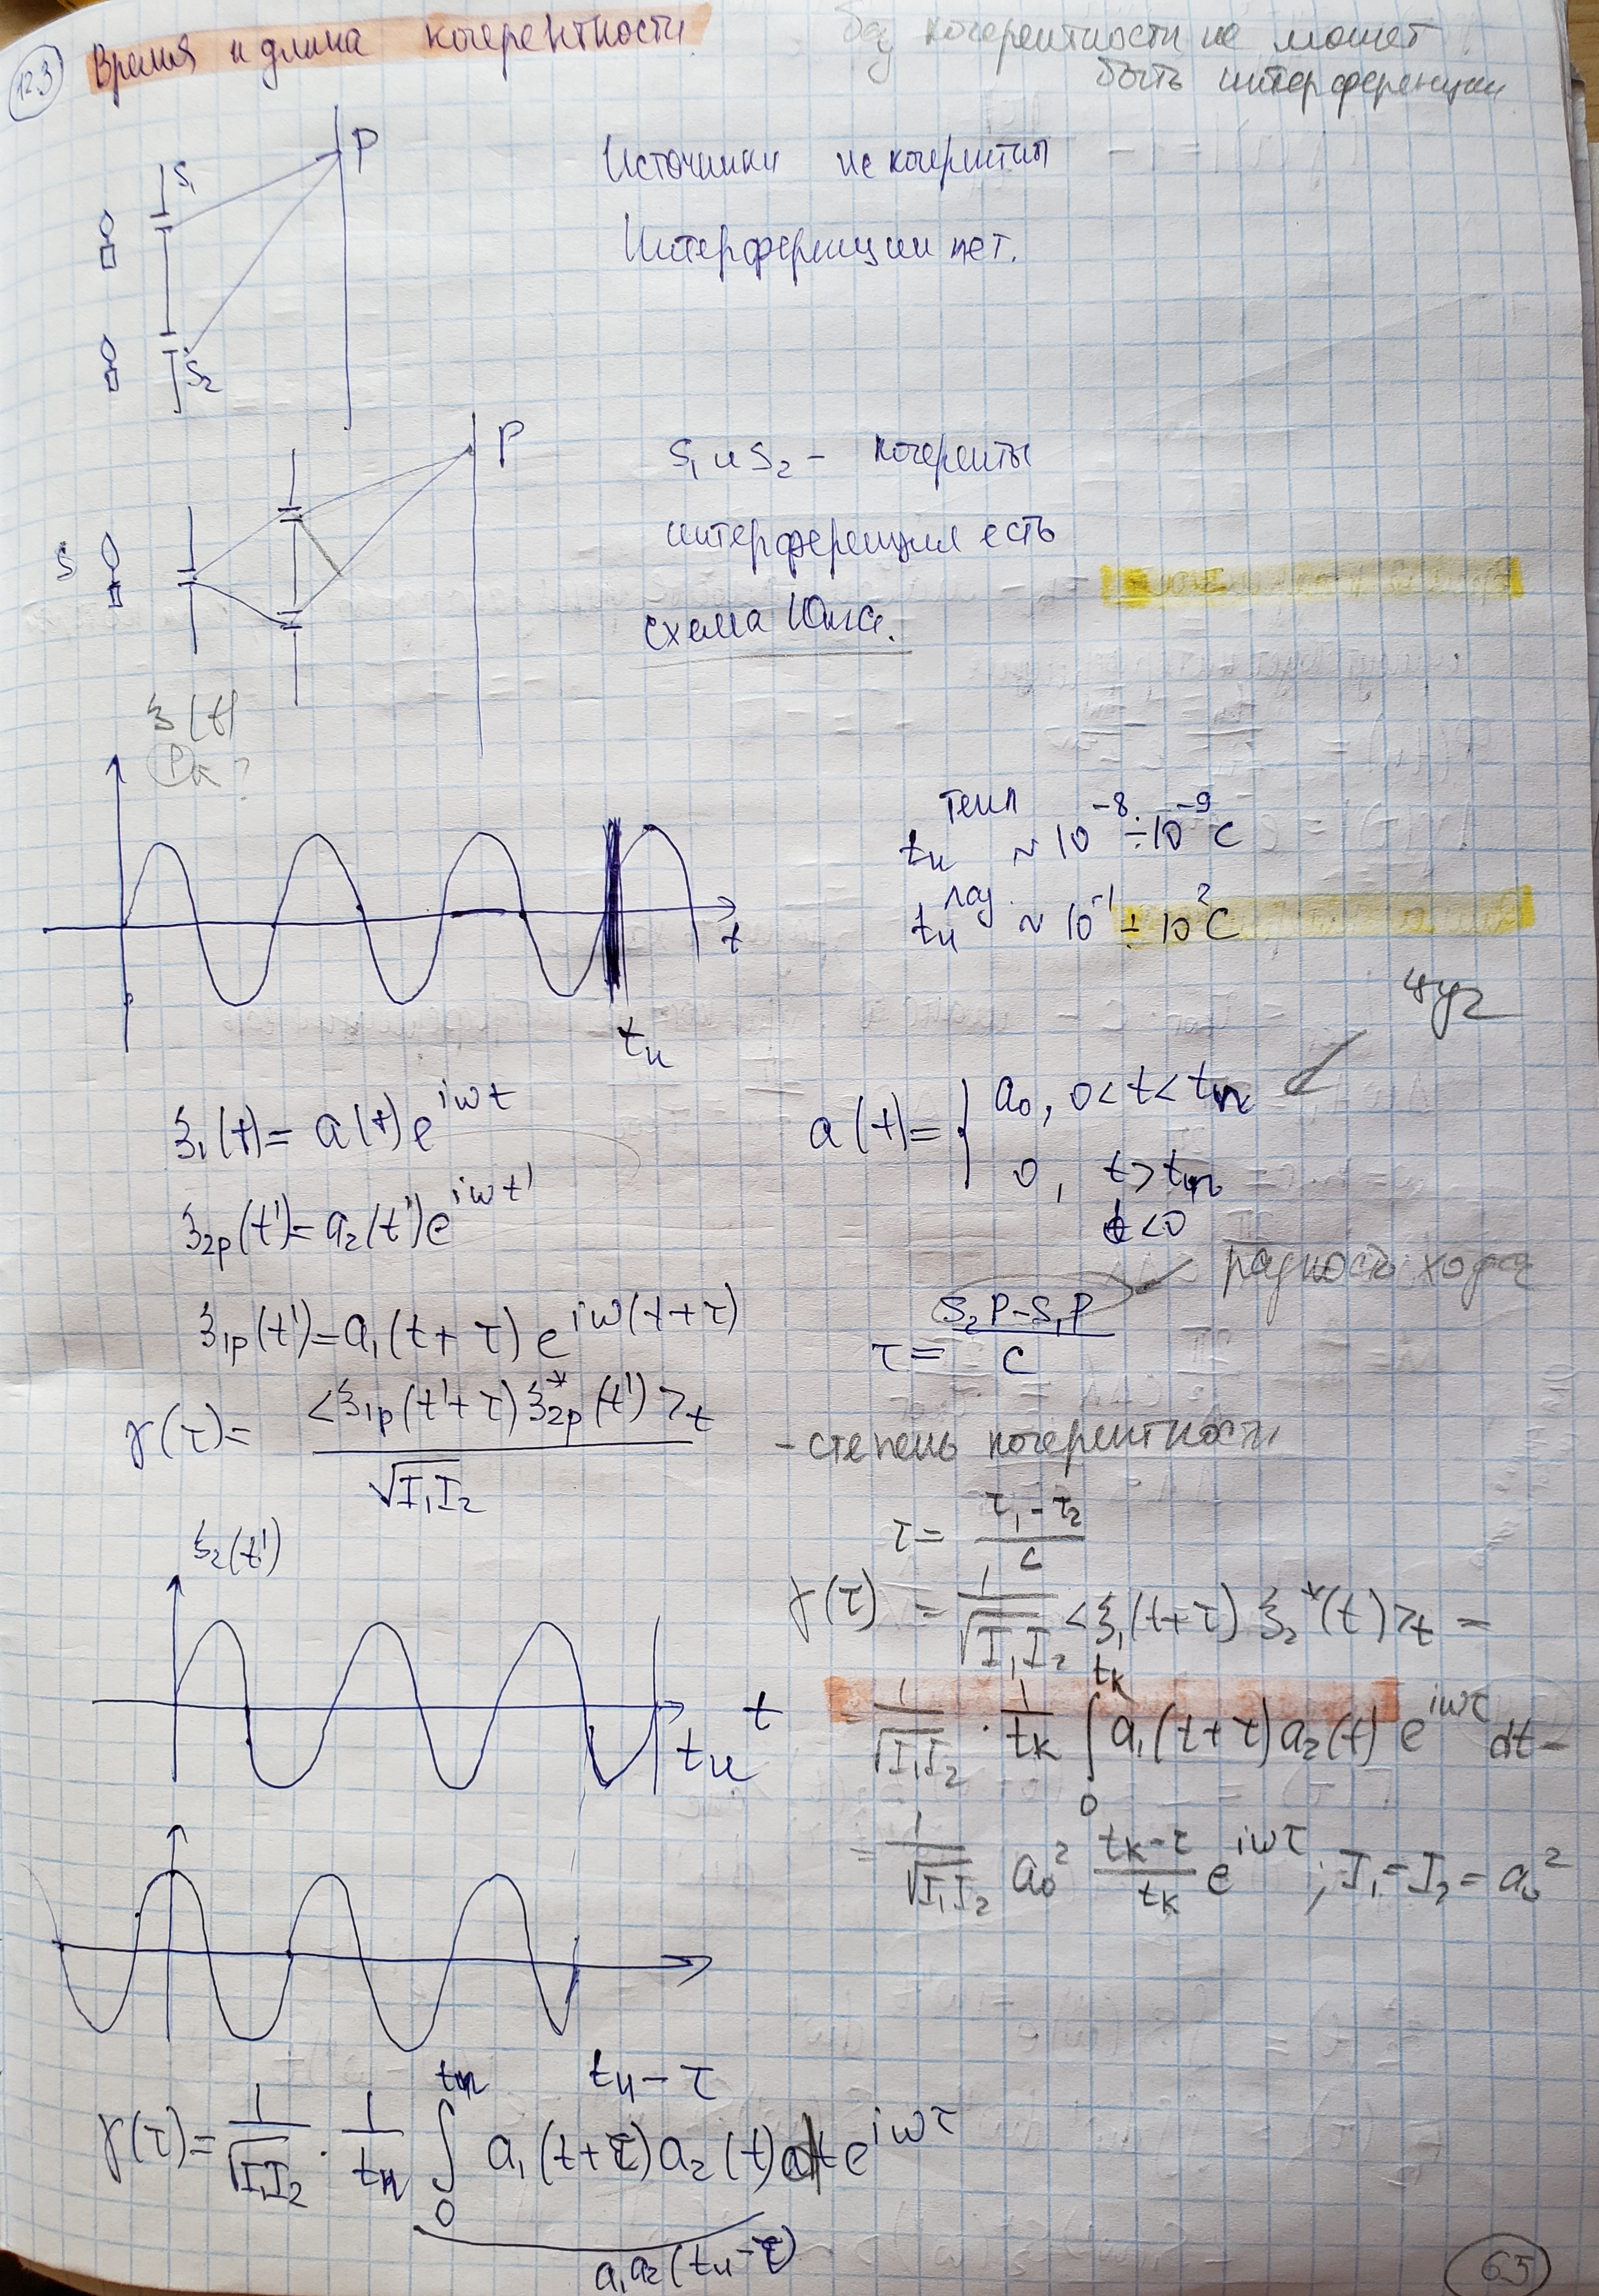 12.3 Время и длина когерентности.
без когерентности не может
быть интерференции
P
S₁
Источники не когерентны
Интерференции нет.
S₂
P
S₁ и S₂ - когеренты
S
интерференция есть
схема Юнга.
ξ(t)
t_и^тепл ~ 10⁻⁸ ÷ 10⁻⁹ с
t_и^лаз. ~ 10⁻¹ ÷ 10² с
t
t_и
цуг
ξ₁(t) = a(t)e^{iωt}
a(t) = { a₀, 0<t<t_и
0, t>t_и
t<0
ξ₂p(t') = a₂(t')e^{iωt'}
разность хода
ξ₁p(t') = a₁(t+τ) e^{iω(t+τ)}
τ = (S₂P-S₁P)/c
γ(τ) = <ξ₁p(t'+τ) ξ*₂p(t')>_t / √I₁I₂
- степень когерентности
τ = (τ₁-τ₂)/c
ξ₂(t')
γ(τ) = 1/√I₁I₂ <ξ₁(t+τ) ξ₂*(t)>_t =
t
t_и
= 1/√I₁I₂ · 1/t_k ∫₀^{t_k} a₁(t+τ)a₂(t) e^{iωτ} dt =
= 1/√I₁I₂ a₀² (t_k-τ)/t_k e^{iωτ}; I₁=I₂=a₀²
t_и-τ
γ(τ) = 1/√I₁I₂ · 1/t_и ∫₀^{t_и} a₁(t+τ)a₂(t)dt e^{iωτ}
a₁a₂(t_и-τ)
65